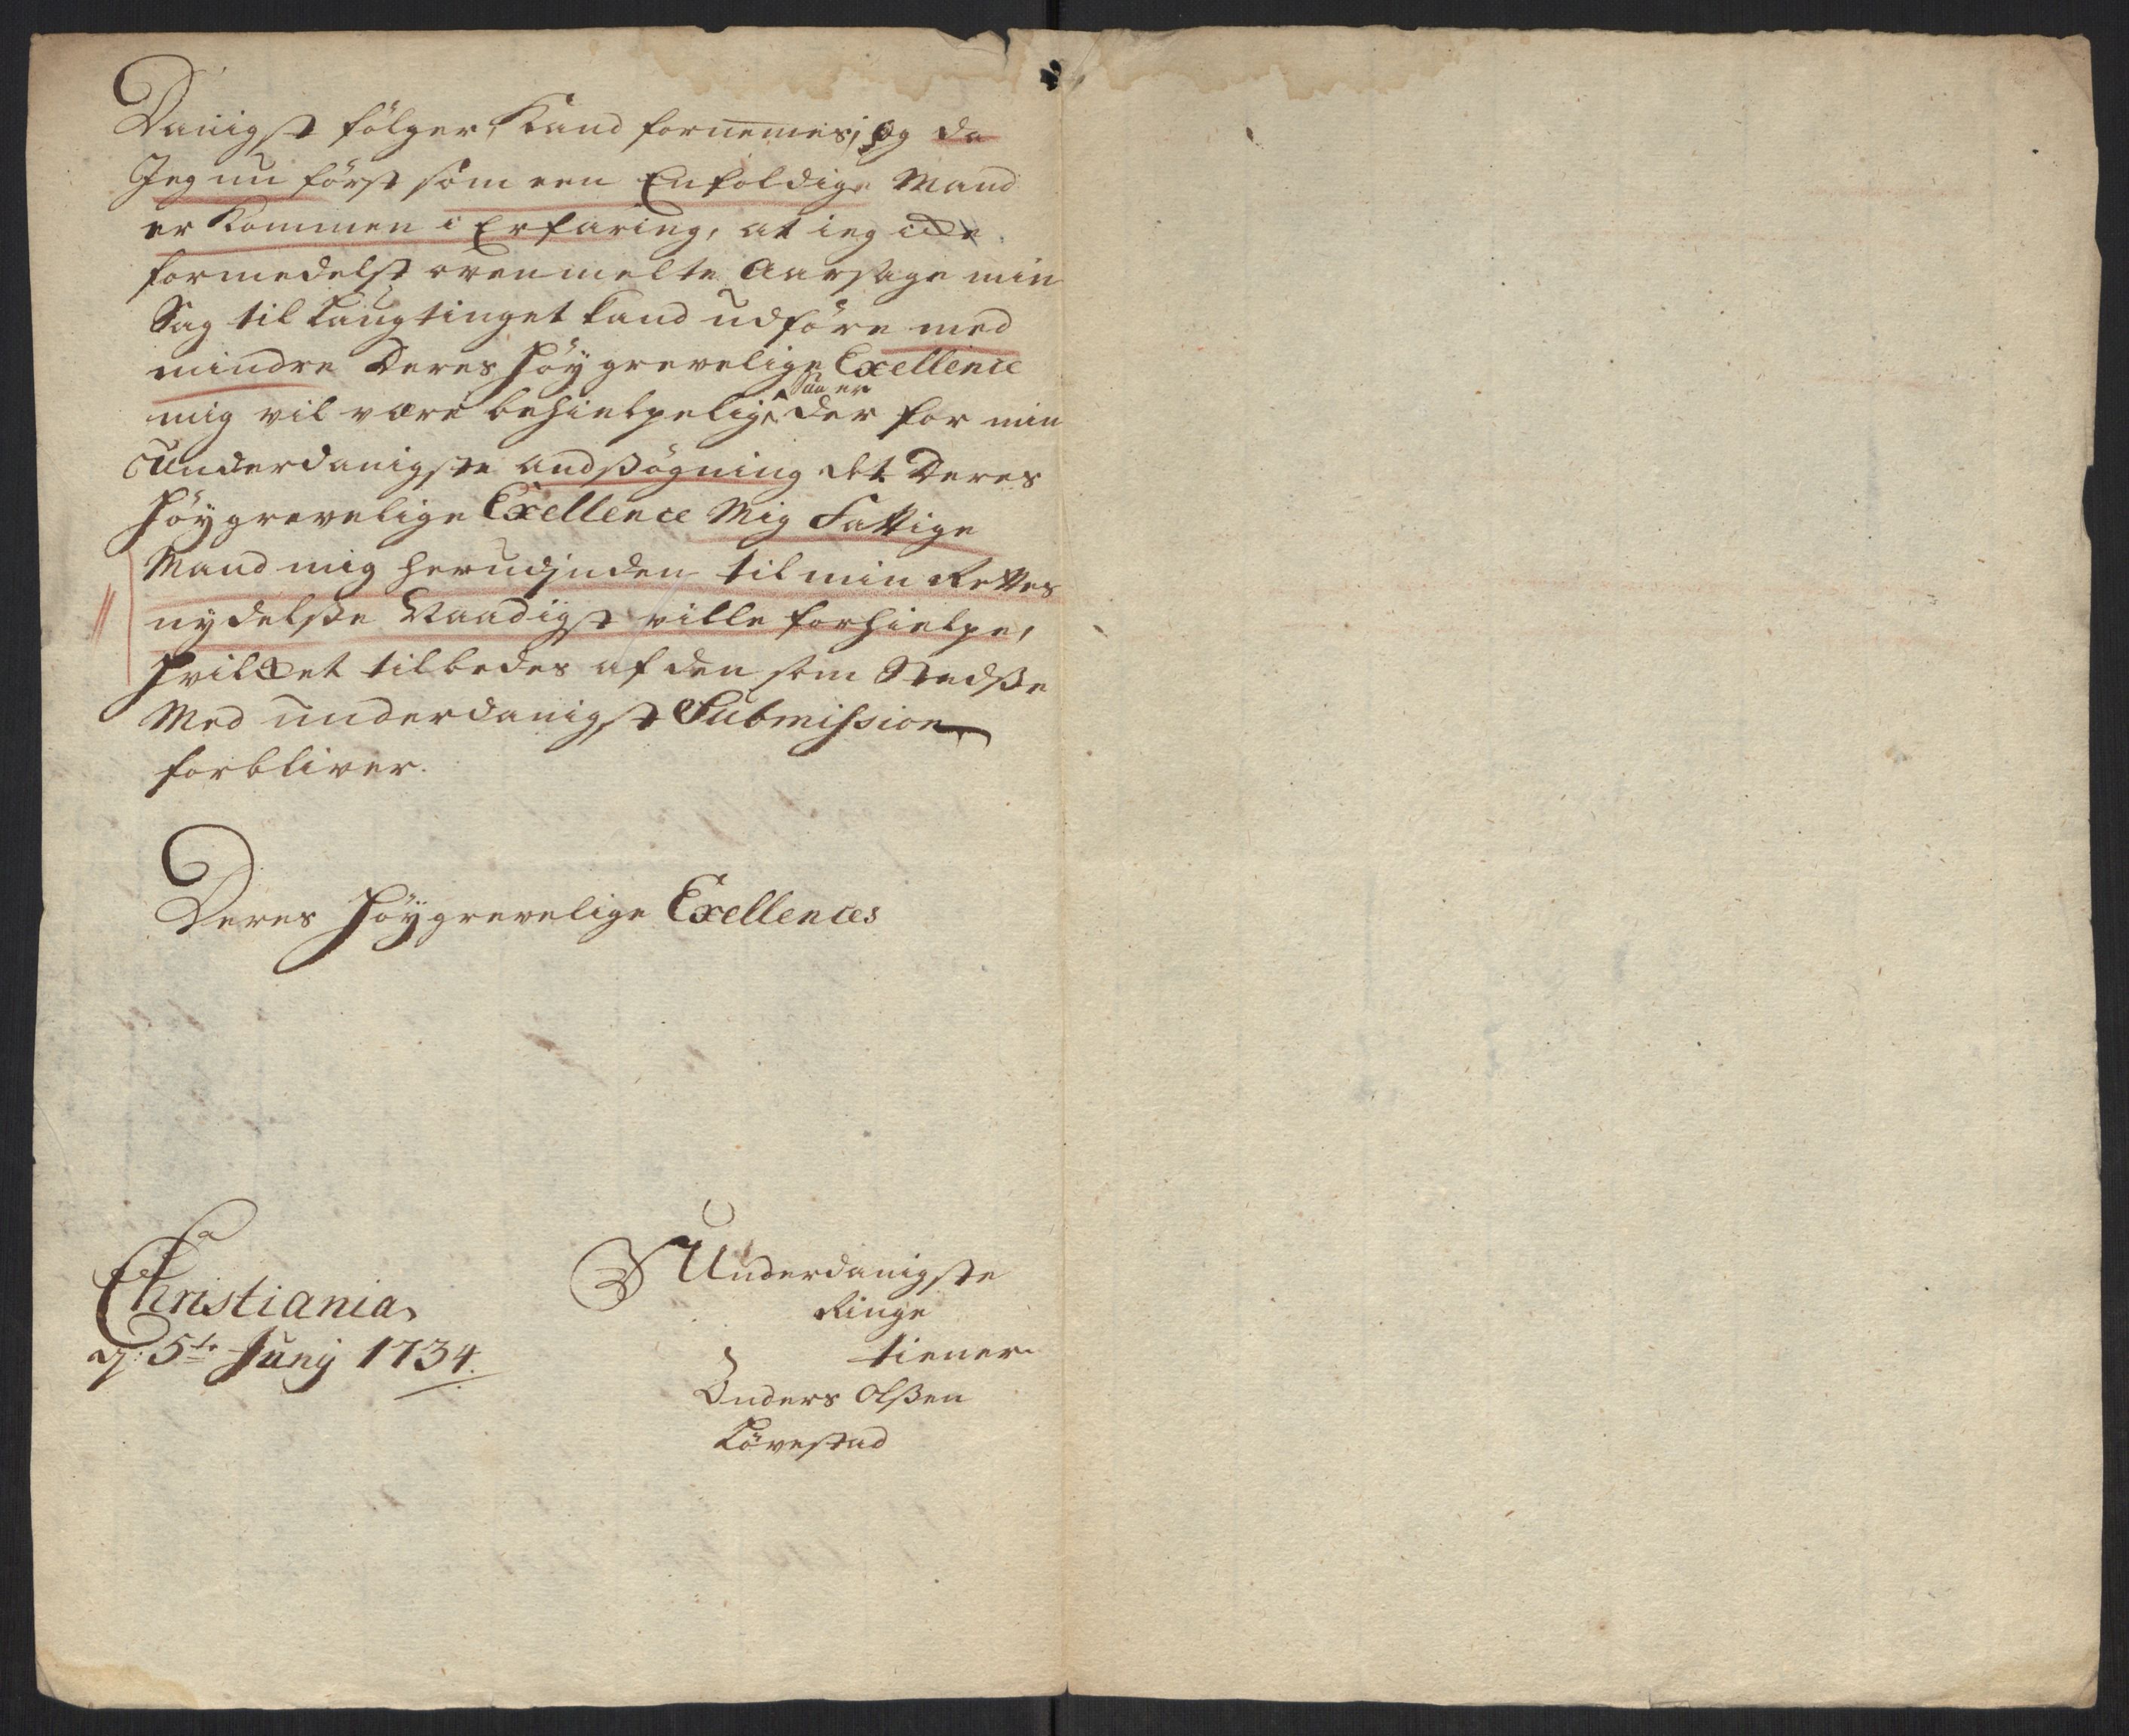 Danigst følger, Kand fornemmes; og da
Jeg nu først som een Enfoldige Mand
er Kommen i Erfaring, at ieg icke
formedelst ovenmelte Aarsage min
Sag til Laugtinget kand udføre med
mindre Deres Høy grevelige Exellence
mig vil være behielpelig, Saa er der for min
Underdanigste andsøgning at Deres
Høygrevelige Exellence Mig Fattige
Mand mig herudjnden til min Rettes
nydelsse Naadigst ville forhielpe,
Hvilket tilbedes af den som Stedsse
Med underdanigst Submission
forbliver.
Deres Høygrevelige Exellences
Christiania
d: 5te Junÿ 1734.
Underdanigste
Ringe
tiener
Anders Olssen
Løvestad